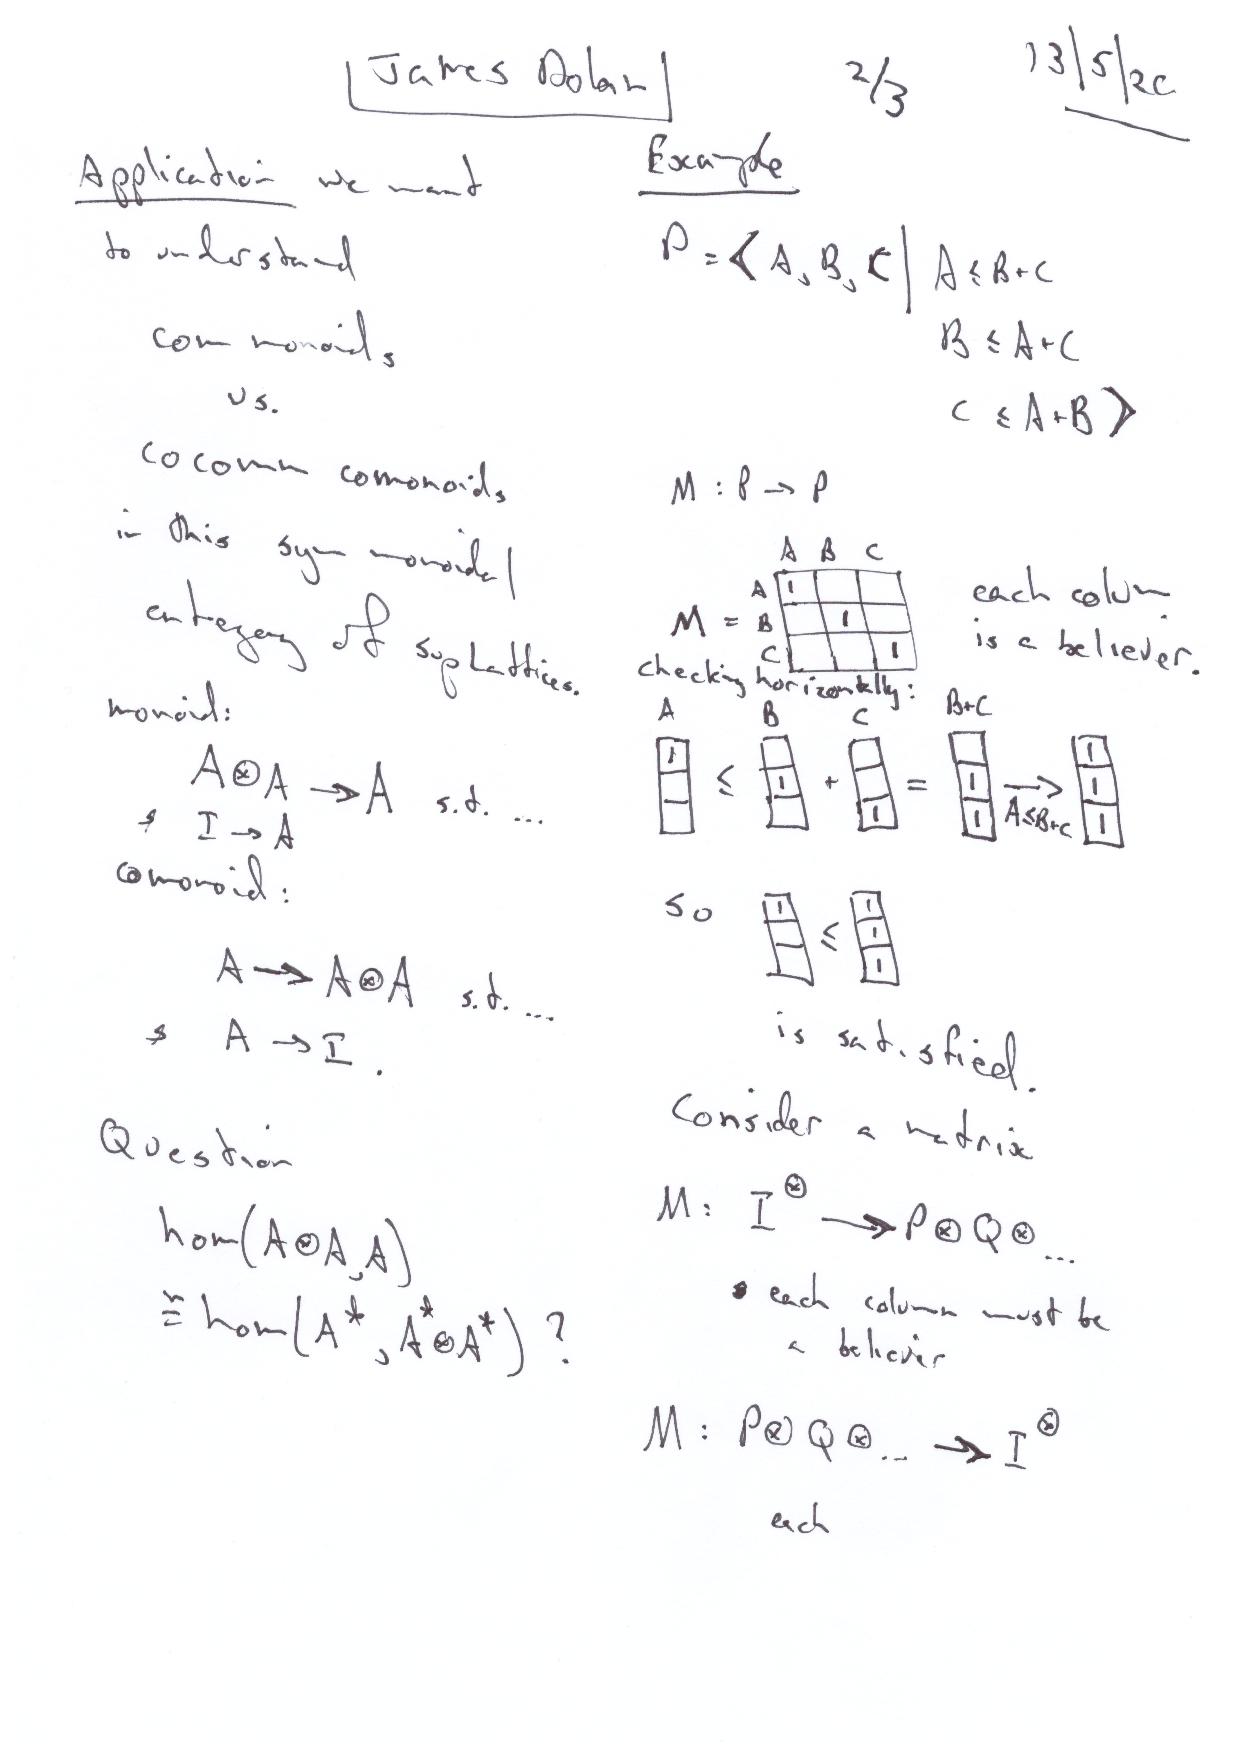 James Dolan
2/3
13/5/20
Application we want
to understand
com monoids
vs.
cocomm comonoids
in this sym monoidal
category of suplattices.
monoid:
A⊗A → A s.t. ...
& I → A
comonoid:
A → A⊗A s.t. ...
& A → I.
Question
hom(A⊗A, A)
≅ hom(A*, A*⊗A*) ?
Example
P = < A, B, C | A ≤ B+C
B ≤ A+C
C ≤ A+B >
M : P → P
A B C
A 1
M = B 1
C 1
each column
is a believer.
checking horizontally:
A B C B+C
1 ≤ 1 + 1 = 1 1 → 1 1 1
A≤B+C
so 1 ≤ 1 1 1
is satisfied.
Consider a matrix
M: I^⊗ → P⊗Q⊗...
• each column must be
a believer
M : P⊗Q⊗... → I^⊗
each